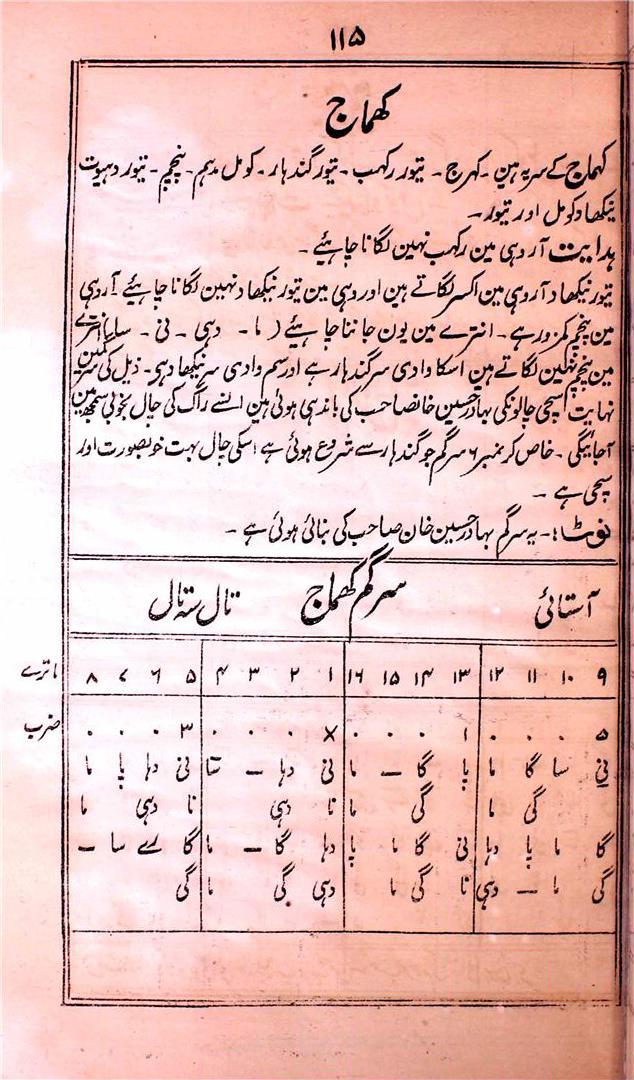 ۱۱۵
کھماج
کہماج کے سر یہ ہین ۔ کہرج ۔ تیور رکہب ۔ تیور گندہار ۔ کومل مدہم ۔ پنچم ۔ تیور دہیوت
نیکھاد کومل اور تیور ۔
ہدایت آروہی مین رکہب نہین لگانا چاہئیے ۔
تیور نیکھاد آروہی مین اکسر لگاتے ہین اور وہی مین تیور نیکھاد نہین لگانا چاہئیے آروہی
مین پنچم کمزور ہے ۔ انترے مین یون جاننا چاہئیے ( ما ۔ دہی ۔ نی ۔ سا ) انترے
مین پنچم نہین لگاتے ہین اسکا وادی سر گندہار ہے اور سم وادی سر نیکھاد ہی ۔ ذیل کی سرگمین
نہایت اچہی چالونکی بہادر حسین خانصاحب کی باندہی ہوئی ہین ان سے راگ کی چال بخوبی سمجھ مین
آجائیگی ۔ خاص کر نمبر ۶ سرگم جو گندہار سے شروع ہوئی ہے اسکی چال بہت خوبصورت اور
سچی ہے ۔
نوٹ :۔ یہ سرگم بہادر حسین خان صاحب کی بنائی ہوئی ہے ۔
آستائی سرگم کھماج تال ستہ تال
۹ ۱۰ ۱۱ ۱۲ ۱۳ ۱۴ ۱۵ ۱۶ ۱ ۲ ۳ ۴ ۵ ۶ ۷ ۸ ماترے
۵ ۰ ۰ ۰ ۱ ۰ ۰ ۰ × ۰ ۰ ۰ ۳ ۰ ۰ ۰ ضرب
نی سا گا ما پا گا – ما نی دہا – سا نی دہا پا ما
گی ما گی ما نا دہی نا دہی ما
گا ما پا دہا نی گا ما پا دہا گا – ما گا رے سا –
گی ما – دہی نا گی ما دہی گی ما گی